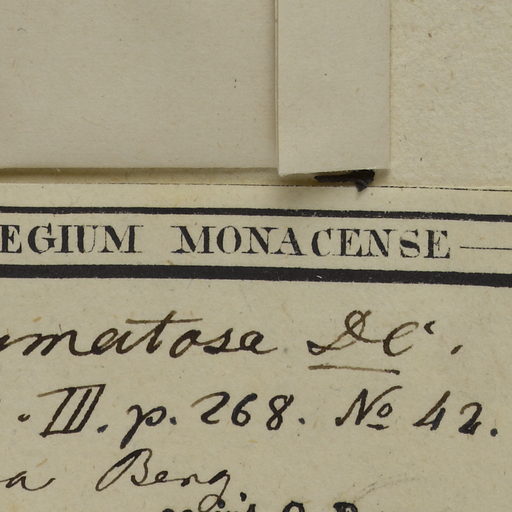 EGIUM MONACENSE
matosa DC.
. III. p. 268. No 42.
a Beng